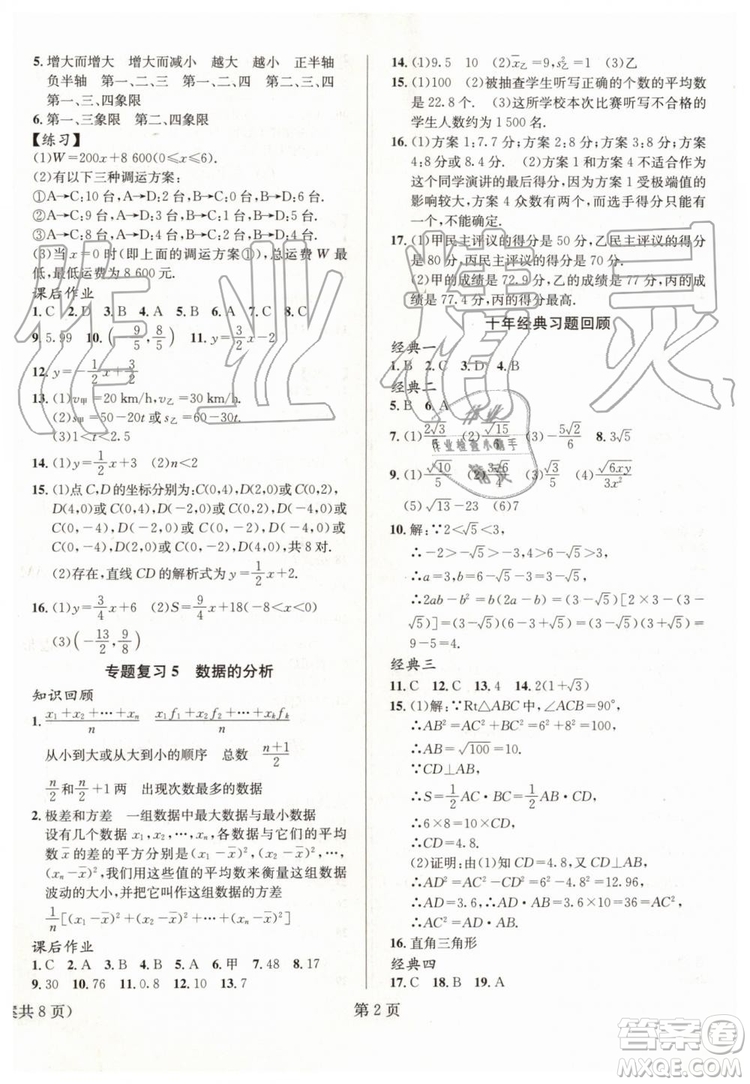 5. 增大而增大 增大而减小 越大 越小 正半轴
负半轴 第一、二、三 第一、二、四 第二、三、四
第一、三、四象限
6. 第一、三象限 第二、四象限
【练习】
(1)W=200x+8 600(0≤x≤6).
(2)有以下三种调运方案:
①A→C:10台,A→D:2台,B→C:0台,B→D:6台;
②A→C:9台,A→D:3台,B→C:1台,B→D:5台;
③A→C:8台,A→D:4台,B→C:2台,B→D:4台.
(3)当x=0时(即上面的调运方案①),总运费W最
低,最低运费为8 600元.
课后作业
1. C 2. D 3. A 4. B 5. C 6. B 7. B 8. C
9. 5.99 10. (9/5, 8/5) 11. y=3/2x-2
12. y=-1/2x
13. (1)v甲=20 km/h,v乙=40 km/h
(2)s甲=50-20t或s乙=60-40t
(3)1<t<2.5
14. (1)y=1/2x+2 (2)n<2
15. (1)点C,D的坐标分别为:C(0,4),D(2,0)或C(0,4),
D(4,0)或C(0,2),D(4,0)或C(0,2),D(2,0)或
C(0,-4),D(-2,0)或C(0,-4),D(-4,0)或
C(0,-2),D(-4,0)或C(0,-2),D(-2,0),共8对.
(2)存在,直线CD的解析式为y=1/2x+2.
16. (1)y=3/4x+6 (2)S=9/4x+18(-8<x<0)
(3)(-13/2, 9/8)
专题复习5 数据的分析
知识回顾
1. (x₁+x₂+…+xₙ)/n (x₁f₁+x₂f₂+…+xₖfₖ)/n
从小到大或从大到小的顺序 总数 (n+1)/2
n/2和n/2+1两 出现次数最多的数据
2. 极差和方差 一组数据中最大数据与最小数据
设有几个数据x₁,x₂,…,xₙ,各数据与它们的平均
数x̄的差的平方分别是(x₁-x̄)²,(x₂-x̄)²,…,
(xₙ-x̄)²,我们用这些值的平均数来衡量这组数据
波动的大小,并把它叫作这组数据的方差
1/n[(x₁-x̄)²+(x₂-x̄)²+…+(xₙ-x̄)²]
课后作业
1. C 2. A 3. D 4. B 5. A 6. 甲 7. 0.25 8. 31
9. 30 10. 76 11. 0.9 12. 10 13. 7
案共8页)
14. (1)9.5 10 (2)x̄乙;s乙² (3)乙
15. (1)100 (2)被抽查学生听写正确的个数的平均数
为22.8个. (3)这所学校本次比赛听写不合格的
学生人数约为1 500名.
16. (1)方案1:7.7分;方案2:8分;方案3:8分;方案
4:8分或8.4分. (2)因为方案1中的平均数不能作
为这个同学演讲的最后得分,所以方案1受极端值的
影响较大,方案4众数有两个,众数不止
一个,不能确定.
17. (1)甲民主评议的得分是50分,乙民主评议的得分
是80分,丙民主评议的得分是70分.
(2)甲的成绩是72.9分,乙的成绩是77分,丙的成
绩是77.4分,丙的得分最高.
十年经典习题回顾
经典一
1. B 2. B 3. A 4. D
经典二
5. B 6. A
7. (1)2√3/3 (2)√15/5 (3)-5√2/6 8. 3√2
9. (1)√10/5 (3)4/3 (4)√6xy/3x²
(5)√13-23 (6)√5
10. 解:∵2<√5<3,
∴-2>-√5>-3,∴3>5-√5>2,
∴a=3,b=5-√5-2=3-√5,
∴2ab-b²=b(2a-b)=(3-√5)[2×3-
(3-√5)]=(3-√5)(6-3+√5)=(3-√5)(3+√5)=
9-5=4.
经典三
11. C 12. C 13. 4 14. 2(1+√3)
15. (1)解:∵Rt△ABC中,∠ACB=90°,
∴AB²=AC²+BC²=6²+8²=100,
∴AB=√100=10.
∵CD⊥AB,
∴S=1/2AC·BC=1/2AB·CD,
∴6×8=10CD,
∴CD=4.8.
(2)证明:由(1)知CD=4.8,
∴AD²=AC²-CD²=6²-4.8²=12.96,
∴AD=3.6.
16. 直角三角形
经典四
17. C 18. B 19. A
第2页
作业精灵
作业
作业检查小帮手
精灵
答案圈
MXQE.COM